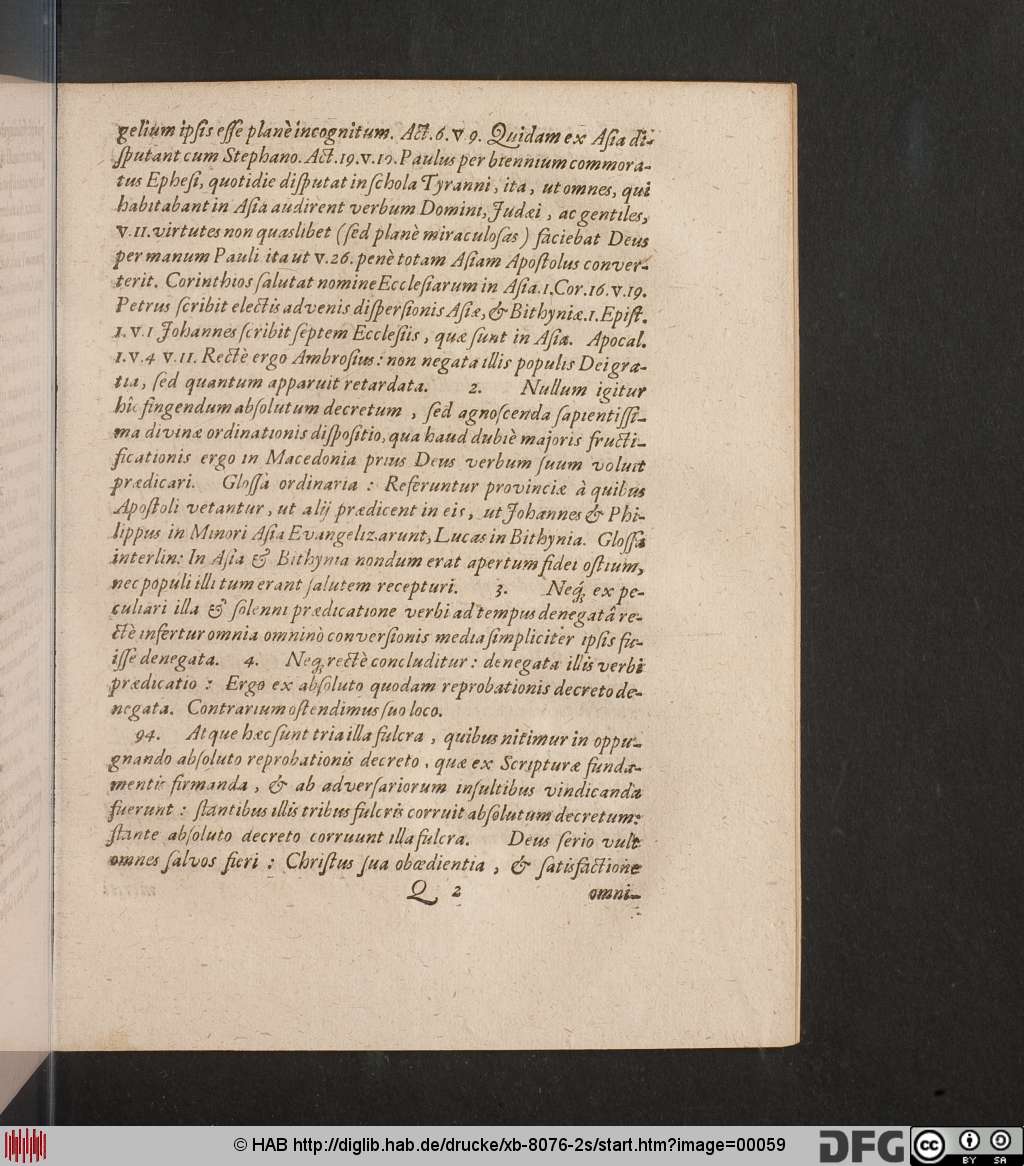 gelium ipſis eſſe planè incognitum. Act. 6. v 9. Quidam ex Aſia di-
ſputant cum Stephano. Act. 19. v. 10. Paulus per biennium commora-
tus Epheſi, quotidie diſputat in ſchola Tyranni, ita, ut omnes, qui
habitabant in Aſia audirent verbum Domini, Judæi, ac gentiles,
v. 11. virtutes non quaslibet (ſed planè miraculoſas) faciebat Deus
per manum Pauli ita ut v. 26. penè totam Aſiam Apoſtolus conver-
terit. Corinthios ſalutat nomine Eccleſiarum in Aſia. 1. Cor. 16. v. 19.
Petrus ſcribit electis advenis diſperſionis Aſiæ, & Bithyniæ. 1. Epiſt.
1. v. 1 Johannes ſcribit ſeptem Eccleſiis, quæ ſunt in Aſia. Apocal.
1. v. 4 v. 11. Rectè ergo Ambroſius: non negata illis populis Dei gra-
tia, ſed quantum apparuit retardata. 2. Nullum igitur
hîc fingendum abſolutum decretum, ſed agnoſcenda ſapientiſſi-
ma divinæ ordinationis diſpoſitio, qua haud dubiè majoris fructi-
ficationis ergo in Macedonia prius Deus verbum ſuum voluit
prædicari. Gloſſa ordinaria: Referuntur provinciæ à quibus
Apoſtoli vetantur, ut alij prædicent in eis, ut Johannes & Phi-
lippus in Minori Aſia Evangelizarunt, Lucas in Bithynia. Gloſſa
interlin: In Aſia & Bithynia nondum erat apertum fidei oſtium,
nec populi illi tum erant ſalutem recepturi. 3. Neq; ex pe-
culiari illa & ſolenni prædicatione verbi ad tempus denegatâ re-
ctè infertur omnia omninò converſionis media ſimpliciter ipſis fu-
iſſe denegata. 4. Neq; rectè concluditur: denegata illis verbi
prædicatio: Ergo ex abſoluto quodam reprobationis decreto de-
negata. Contrarium oſtendimus ſuo loco.
94. Atque hæc ſunt tria illa fulcra, quibus nitimur in oppu-
gnando abſoluto reprobationis decreto, quæ ex Scripturæ funda-
mentis firmanda, & ab adverſariorum inſultibus vindicanda
fuerunt: ſtantibus illis tribus fulcris corruit abſolutum decretum:
ſtante abſoluto decreto corruunt illa fulcra. Deus ſerio vult
omnes ſalvos fieri: Chriſtus ſua obœdientia, & ſatisfactione
Q 2 omni-
© HAB http://diglib.hab.de/drucke/xb-8076-2s/start.htm?image=00059
DFG
cc BY SA